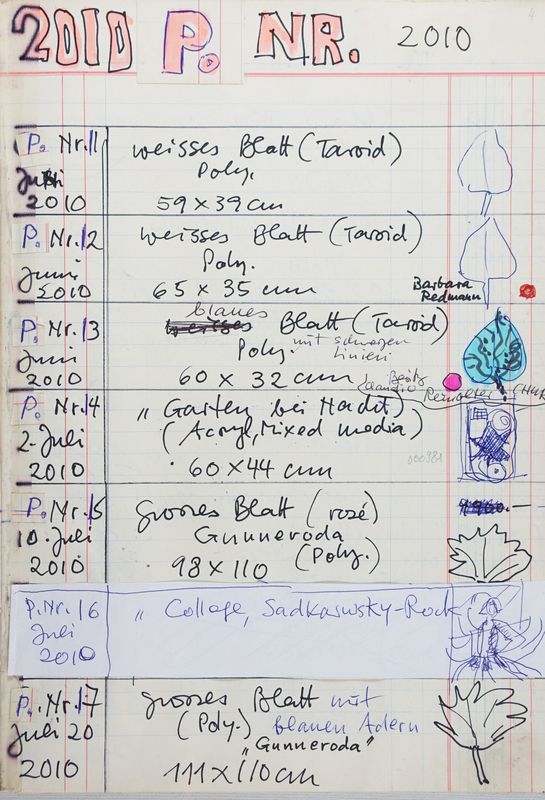 2010 P. NR. 2010
P. Nr. 11 weisses Blatt (Taroid)
Poly.
2010 59 x 39 cm
P. Nr. 12 weisses Blatt (Taroid)
Juni Poly.
2010 65 x 35 cm
Barbara
Redmann
blaues
P. Nr. 13 Blatt (Taroid)
Juni Poly. mit schwarzen
Linien
2010 60 x 32 cm
P. Nr. 14 „Garten bei Nacht)
2. Juli (Acryl, Mixed media)
2010 60 x 44 cm
000981
P. Nr. 15 grosses Blatt (rosé)
10. Juli Gunneroda
2010 98 x 110 (Poly.)
P. Nr. 16 „Collage, Sadkowsky-Rock
Juli
2010
P. Nr. 17 grosses Blatt mit
Juli 20 (Poly.) blauen Adern
„Gunneroda"
2010 111 x 110 cm